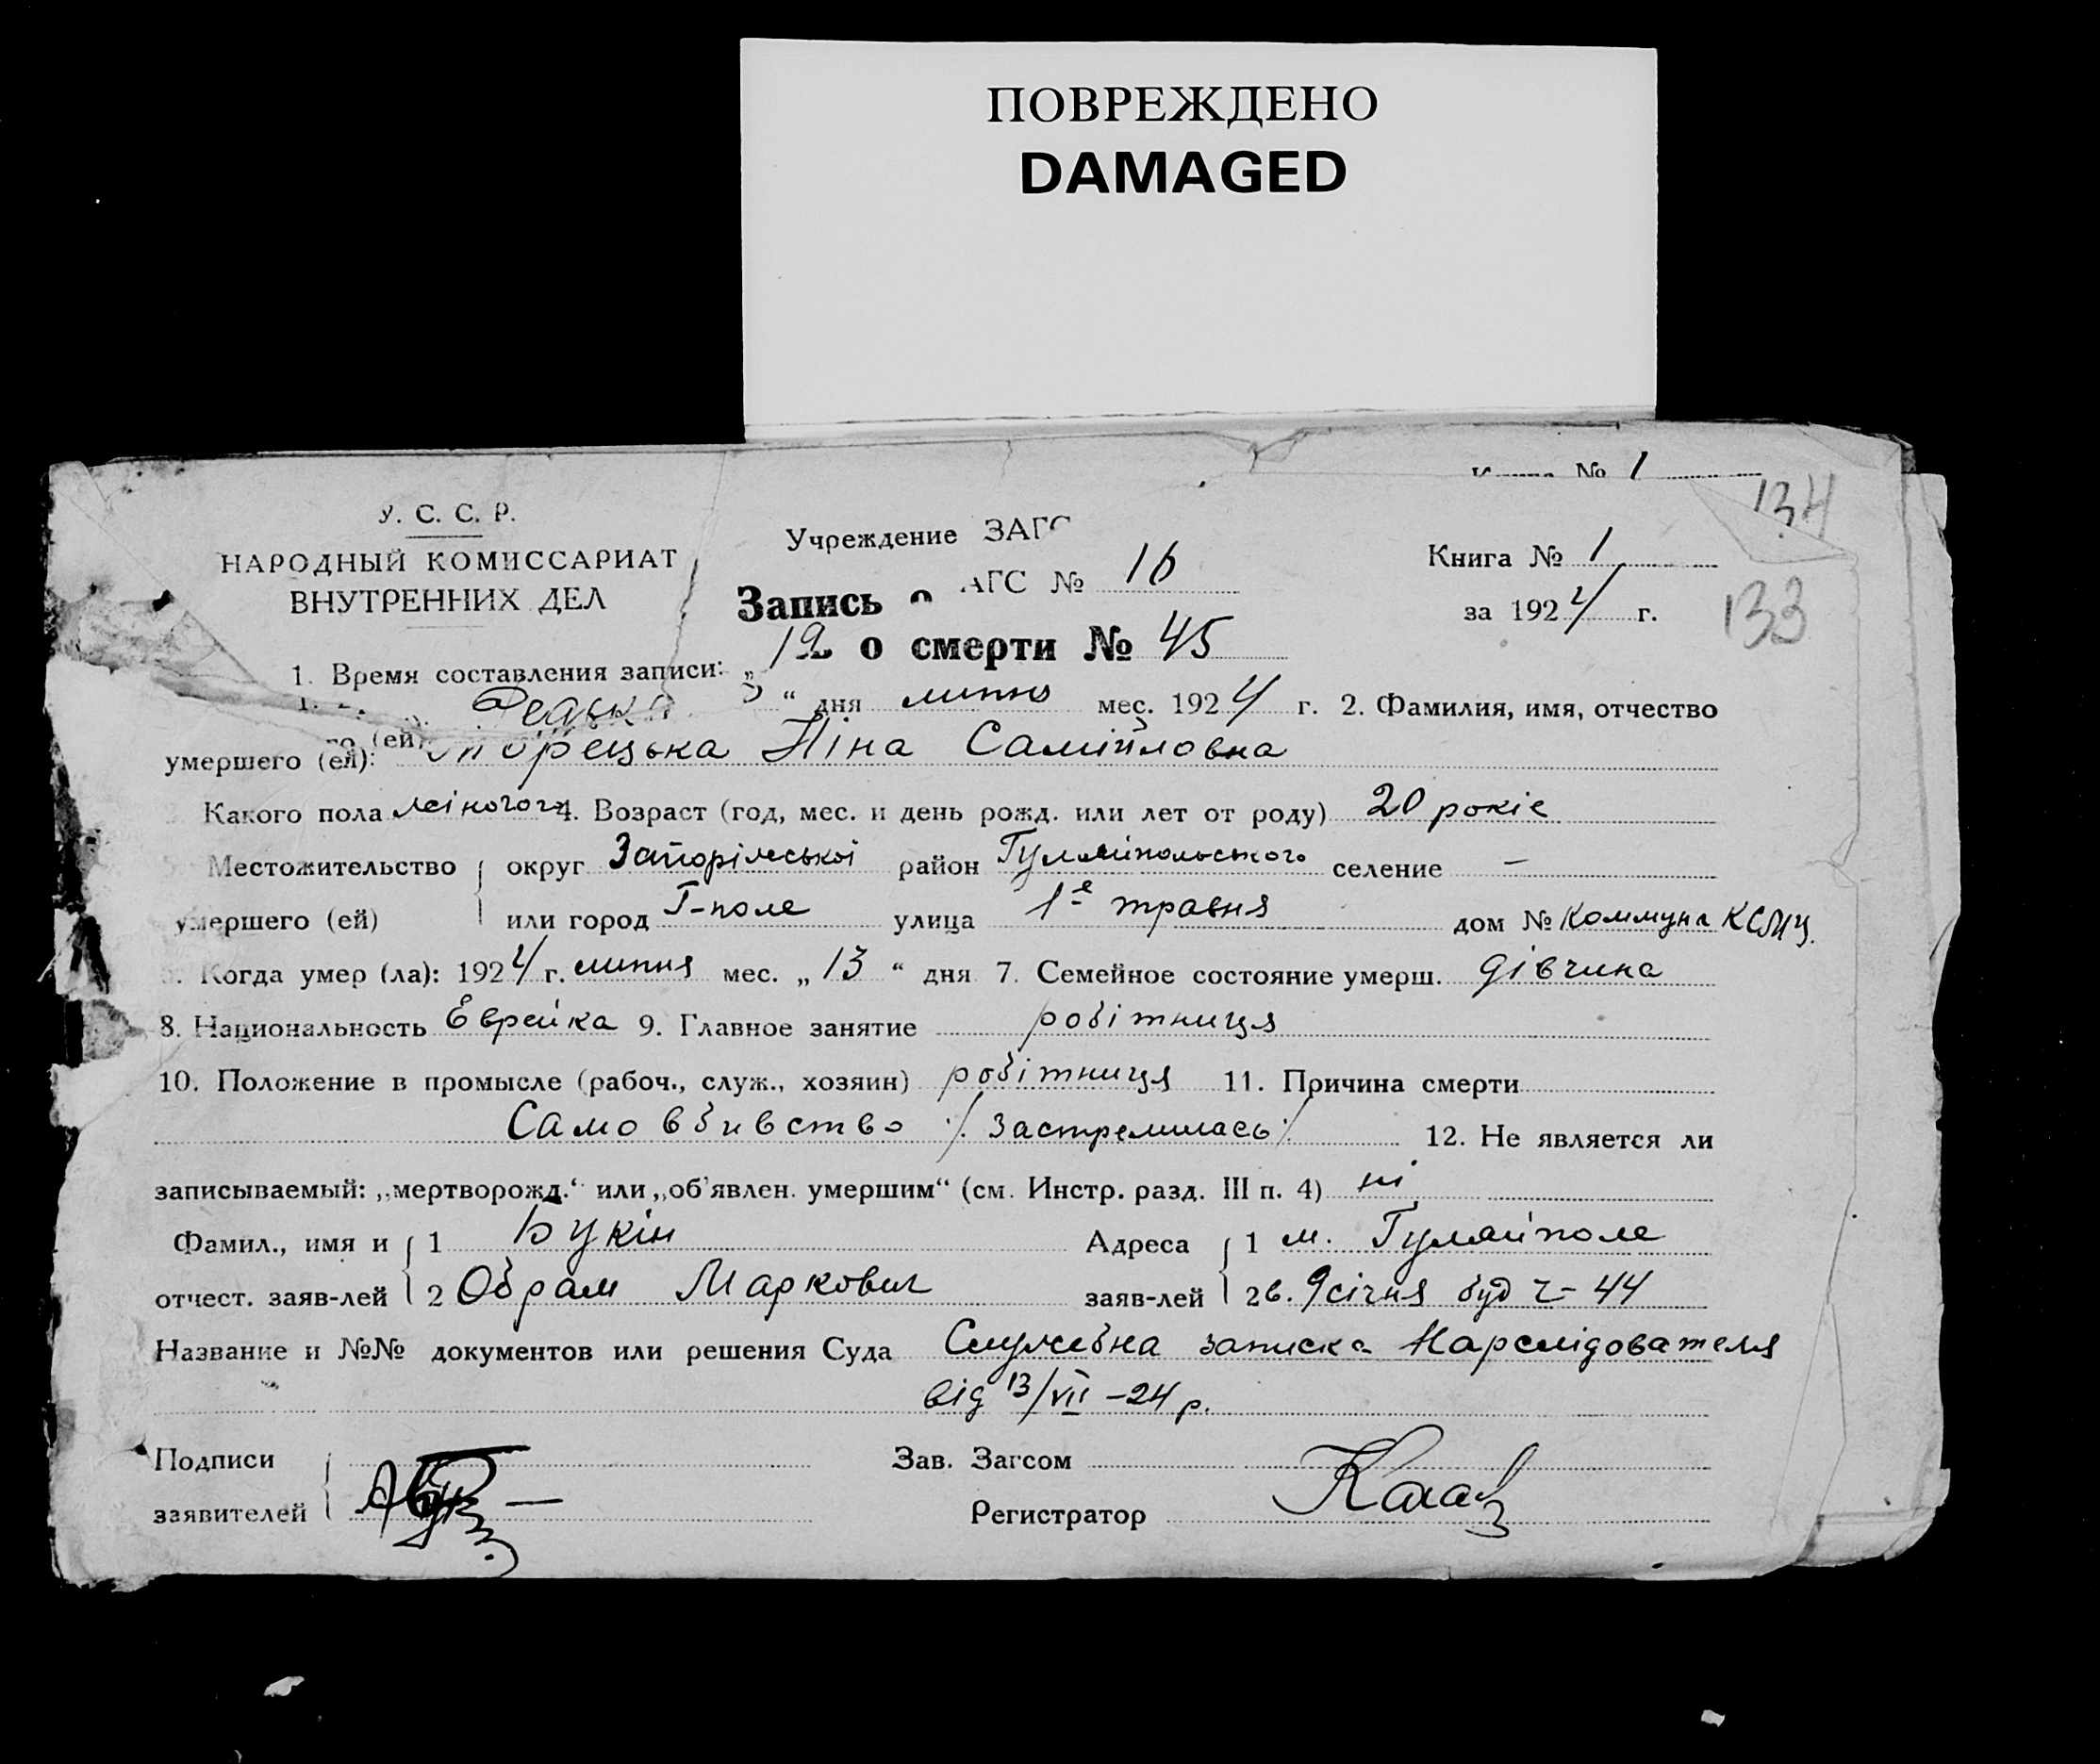 ПОВРЕЖДЕНО
DAMAGED
№ 1
134
У. С. С. Р.
НАРОДНЫЙ КОМИССАРИАТ
ВНУТРЕННИХ ДЕЛ
Учреждение ЗАГС
АГС № 16
Книга № 1
за 1924 г.
133
Запись о
12 о смерти № 45
1. Время составления записи: „
“ дня липня мес. 1924 г. 2. Фамилия, имя, отчество
умершего (ей): Ніна Самійловна
Какого пола жіночого 4. Возраст (год, мес. и день рожд. или лет от роду) 20 років
Местожительство округ Запоріжської район Гуляйпольського селение —
умершего (ей) или город Г-поле улица 1-е травня дом № Коммуна
Когда умер (ла): 1924 г. липня мес. „ 13 “ дня 7. Семейное состояние умерш. дівчина
8. Национальность Еврейка 9. Главное занятие робітниця
10. Положение в промысле (рабоч., служ., хозяин) робітниця 11. Причина смерти
Само вбивство ./. Застрелилась ./. 12. Не является ли
записываемый: „мертворожд.“ или „об'явлен. умершим“ (см. Инстр. разд. III п. 4) ні
Фамил., имя и 1 Букін Адреса 1 м. Гуляйполе
отчест. заяв-лей 2 Обрам Маркович заяв-лей 2 в. 9 січня буд ч- 44
Название и №№ документов или решения Суда Службна записка Нарслідователя
від 13/VII -24 р.
Подписи Зав. Загсом
заявителей Регистратор